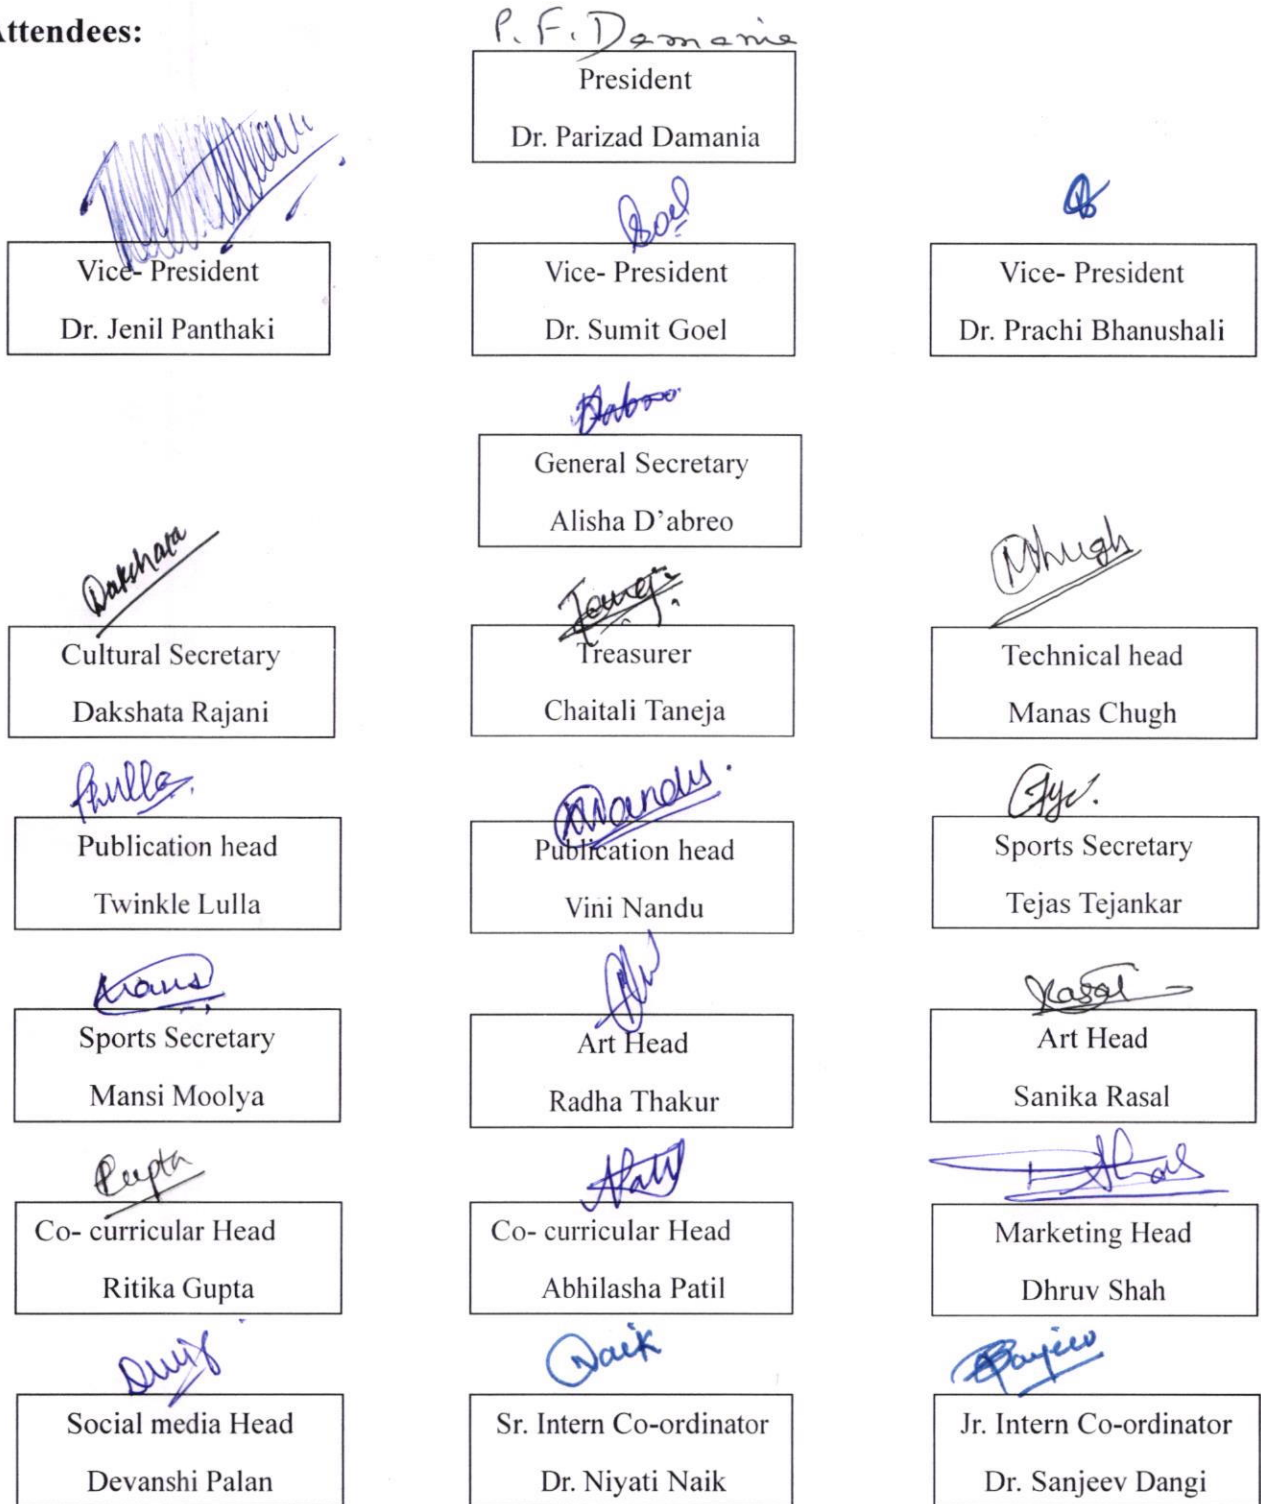 Attendees:
P. F. Damania
President
Dr. Parizad Damania
Goel
Vice- President
Dr. Jenil Panthaki
Vice- President
Dr. Sumit Goel
Vice- President
Dr. Prachi Bhanushali
General Secretary
Alisha D’abreo
Dakshata
MChugh
Cultural Secretary
Dakshata Rajani
Treasurer
Chaitali Taneja
Technical head
Manas Chugh
Publication head
Twinkle Lulla
Publication head
Vini Nandu
Sports Secretary
Tejas Tejankar
Rasal
Sports Secretary
Mansi Moolya
Art Head
Radha Thakur
Art Head
Sanika Rasal
RGupta
APatil
Co- curricular Head
Ritika Gupta
Co- curricular Head
Abhilasha Patil
Marketing Head
Dhruv Shah
Naik
Sanjeev
Social media Head
Devanshi Palan
Sr. Intern Co-ordinator
Dr. Niyati Naik
Jr. Intern Co-ordinator
Dr. Sanjeev Dangi